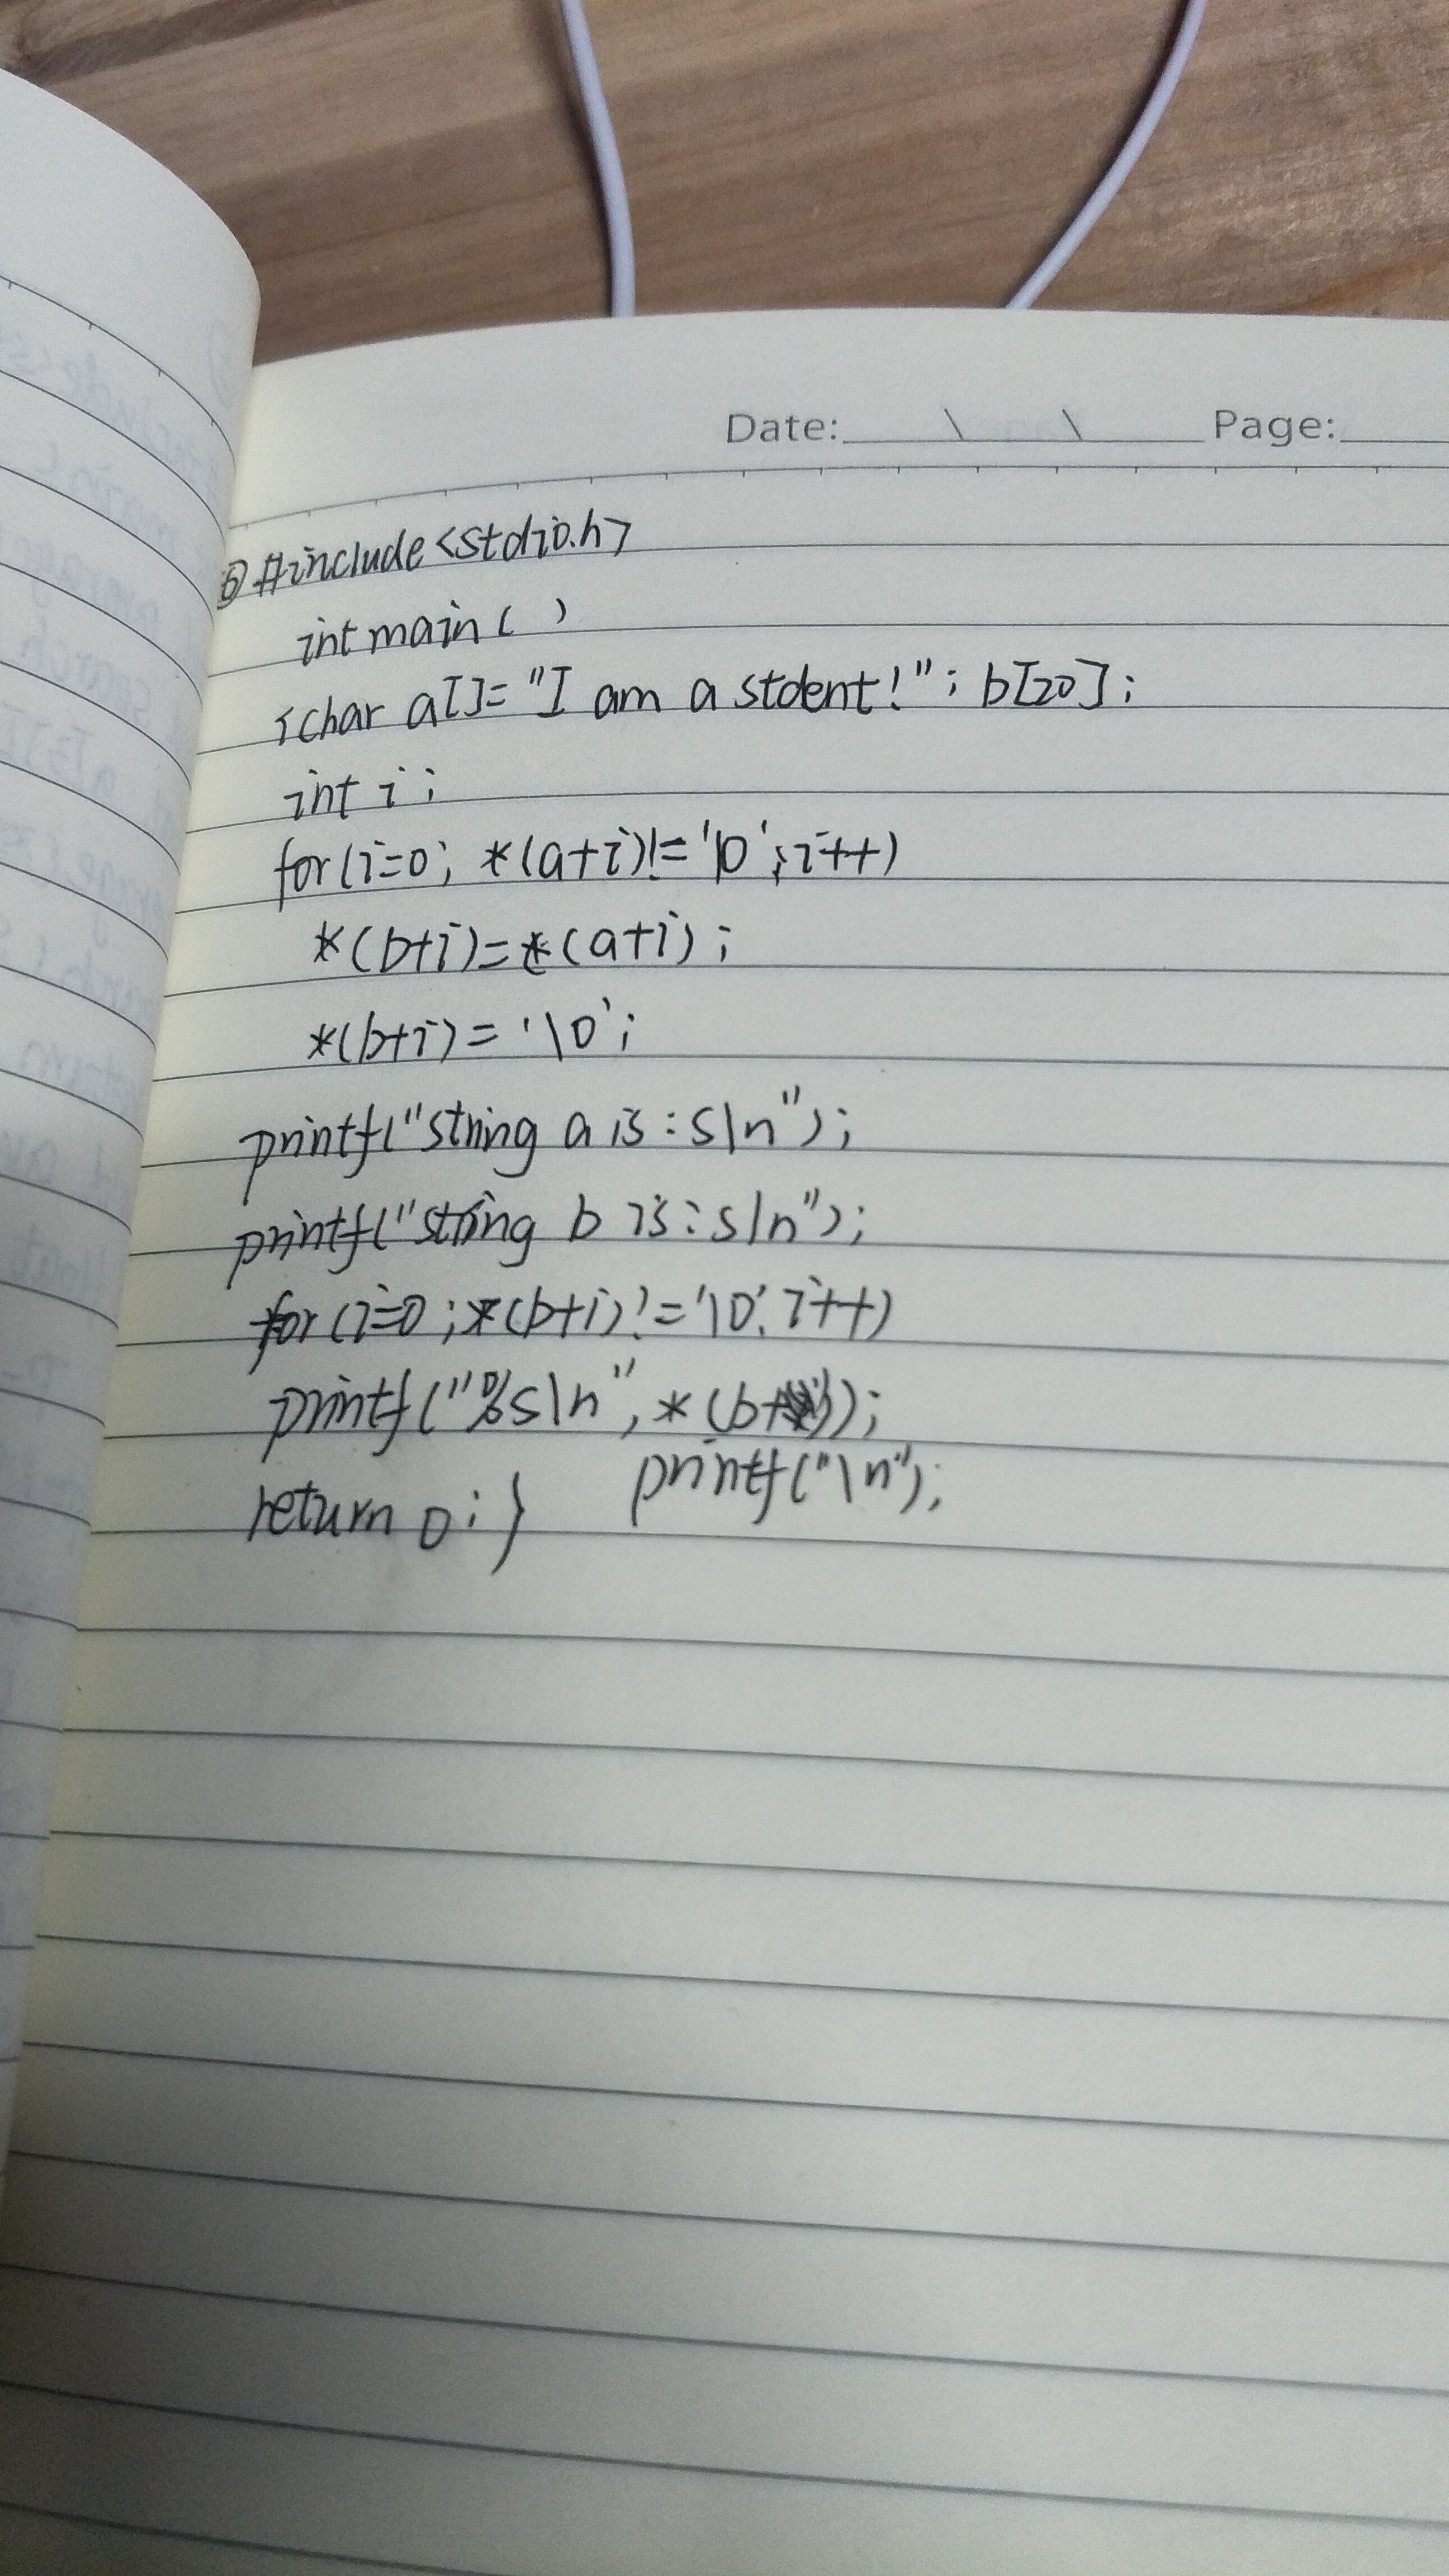 Date: \ \ Page:
⑥#include<stdio.h>
int main( )
{char a[]="I am a stdent!"; b[20];
int i;
for(i=0; *(a+i)!='\0';i++)
*(b+i)=*(a+i);
*(b+i)='\0';
printf("string a is:s\n");
printf("string b is:s\n");
for(i=0;*(b+i)!='\0'.i++)
printf("%s\n",*(b+i));
printf("\n");
return 0;}